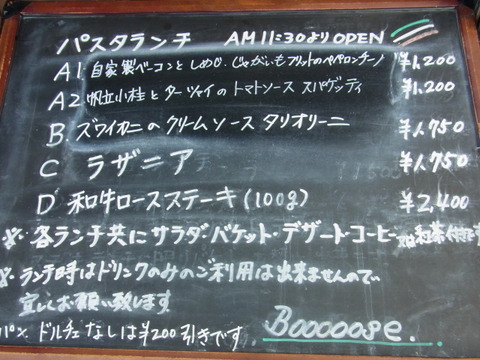 パスタランチ AM11:30よりOPEN
A1. 自家製ベーコンとしめじ、じゃがいもフリットのペペロンチーノ ¥1,200
A2. 帆立小柱とターツァイのトマトソース スパゲッティ ¥1,200
B. ズワイカニのクリームソース タリオリーニ ¥1,750
C ラザニア ¥1,750
D 和牛ロースステーキ(100g) ¥2,400
※. 各ランチ共にサラダ・バケット・デザート・コーヒー又は紅茶付
※ ランチ時はドリンクのみのご利用は出来ませんので
宜しくお願い致します
ドルチェなしは¥200引きです
Booooose.